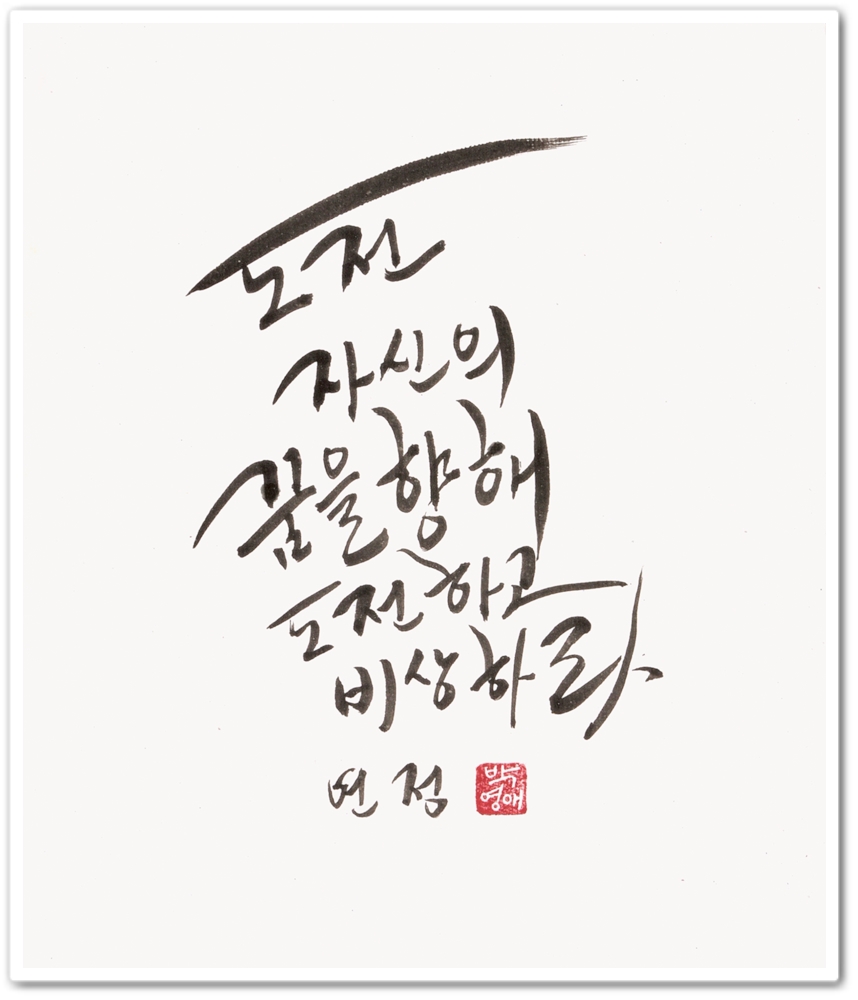 도전
자신의
꿈을 향해
도전하고
비상하라
연점
박
영애